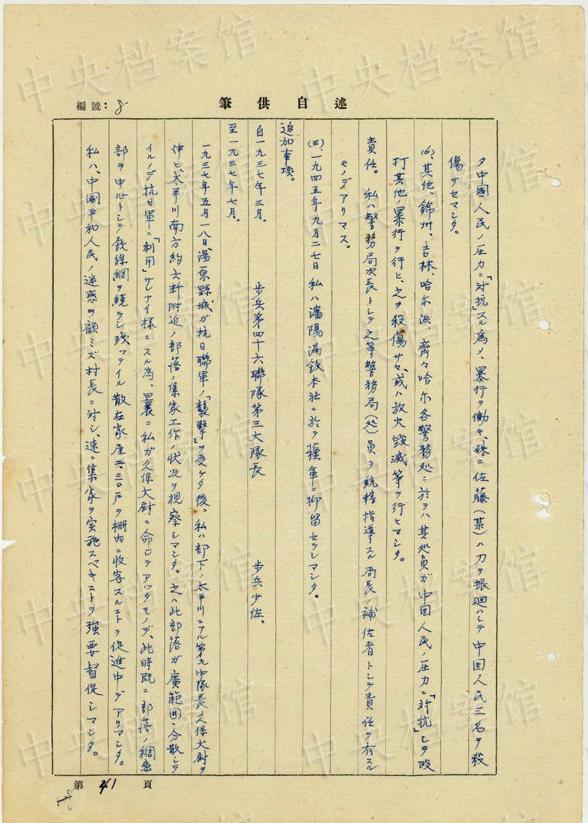 編號：8
述自供筆
タ中國人民ノ圧力ニ「対抗」スル為メ、暴行ヲ働キ、殊ニ佐藤(某)ハ刀ヲ振廻ハシテ中国人民三名ヲ殺
傷サセマシタ。
(6)、其他、錦州、吉林、哈尔浜、齊々哈尔各警務処ニ於テハ其処員ガ中国人民ノ圧力ニ「対抗」シテ殴
打其他ノ暴行ヲ行ヒ、之ヲ殺傷サセ、或ハ放火毀滅等ヲ行ヒマシタ。
責任。私ハ警務局次長トシテ之等警務局(処)員ヲ統轄指導スル局長ノ補佐者トシテ責任ヲ有スル
モノデアリマス。
(三)、一九四五年九月二七日私ハ瀋陽満鉄本社ニ於テ蘇軍ニ抑留セラレマシタ。
追加事項。
自一九三七年三月。
至一九三七年七月。
歩兵第四十六聯隊第三大隊長
歩兵少佐。
一九三七年五月一八日湯原縣城ガ抗日聯軍ノ「襲撃」ヲ受ケタ後、私ハ部下ノ太平川ニアル第九中隊長久保大尉ヲ
伴ヒ、太平川南方約六粁附近ノ部落ノ集家工作ノ状況ヲ視察シマシタ。之ハ此部落ガ廣範囲ニ分散シテ
イルノデ抗日軍ニ「利用」サレナイ様ニスル為、曩ニ私ガ久保大尉ニ命ジテアッタモノデ、此時既ニ部落ノ稠密
部ヲ中心トシテ鉄線網ヲ繞ラシ残ッテイル散在家屋二三〇戸ヲ柵内ニ收容スルコトヲ促進中デアリマシタ。
私ハ、中國平和人民ノ迷惑ヲ顧ミズ村長ニ対シ、速ニ集家ヲ実施スベキコトヲ強要督促シマシタ。
第41頁
中央档案馆